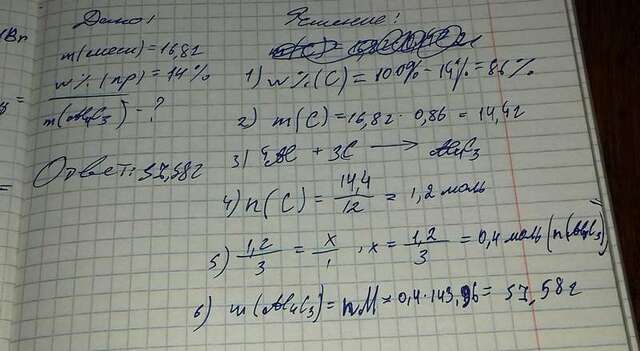 Дано:
m(смеси)=16,8г
w%(пр)=14%
m(Al4C3)-?
Ответ: 57,58г
Решение:
1) w%(C)=100%-14%=86%
2) m(C)=16,8г·0,86=14,4г
3) 4Al + 3C → Al4C3
4) n(C)=14,4/12=1,2 моль
5) 1,2/3=x/1, x=1,2/3=0,4 моль (n(Al4C3))
6) m(Al4C3)=nM=0,4·143,96=57,58г